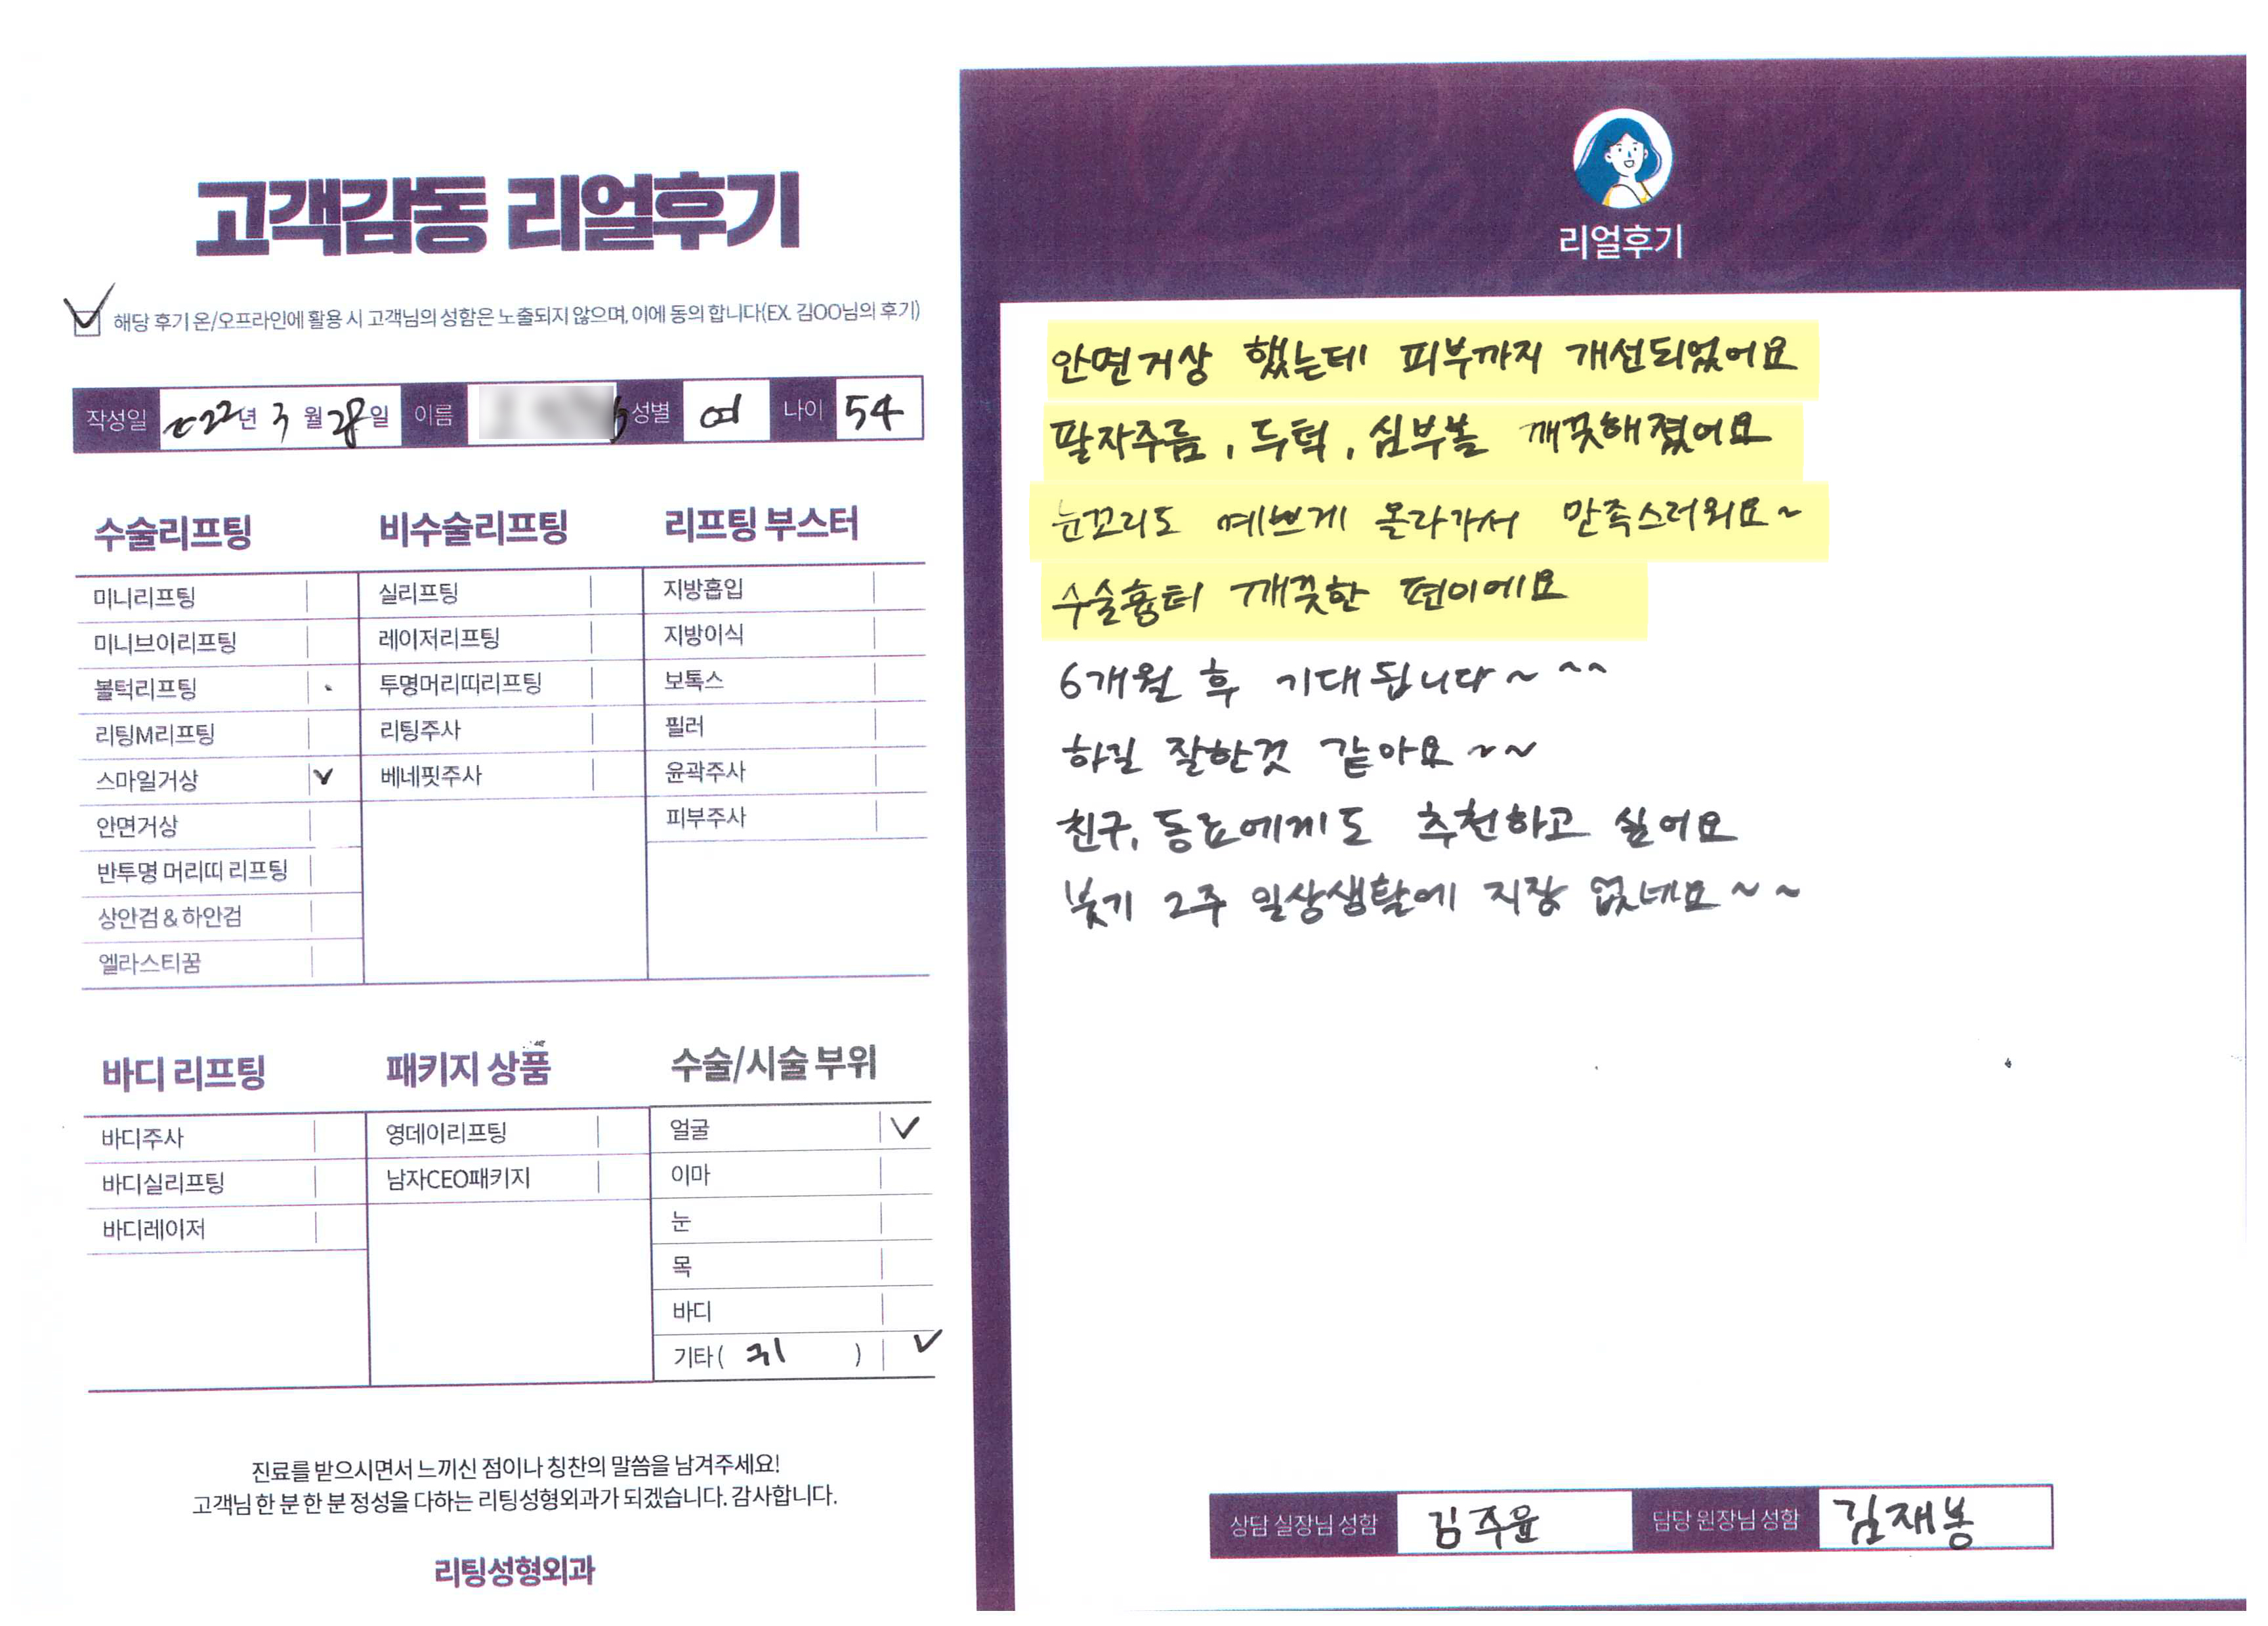 고객감동 리얼후기
해당 후기 온/오프라인에 활용 시 고객님의 성함은 노출되지 않으며, 이에 동의 합니다(EX. 김OO님의 후기)
작성일 2022년 3월 28일 이름 성별 여 나이 54
수술리프팅
미니리프팅
미니브이리프팅
볼턱리프팅
리팅M리프팅
스마일거상 V
안면거상
반투명 머리띠 리프팅
상안검 & 하안검
엘라스티꿈
비수술리프팅
실리프팅
레이저리프팅
투명머리띠리프팅
리팅주사
베네핏주사
리프팅 부스터
지방흡입
지방이식
보톡스
필러
윤곽주사
피부주사
바디 리프팅
바디주사
바디실리프팅
바디레이저
패키지 상품
영데이리프팅
남자CEO패키지
수술/시술 부위
얼굴 V
이마
눈
목
바디
기타( 귀 ) V
진료를 받으시면서 느끼신 점이나 칭찬의 말씀을 남겨주세요!
고객님 한 분 한 분 정성을 다하는 리팅성형외과가 되겠습니다. 감사합니다.
리팅성형외과
리얼후기
안면거상 했는데 피부까지 개선되었어요
팔자주름, 두턱, 심부볼 깨끗해졌어요
눈꼬리도 예쁘게 올라가서 만족스러워요~
수술흉터 깨끗한 편이에요
6개월 후 기대됩니다~ ^^
하길 잘한것 같아요~~
친구, 동료에게도 추천하고 싶어요
붓기 2주 일상생활에 지장 없네요~~
상담 실장님 성함 김주윤 담당 원장님 성함 김재봉